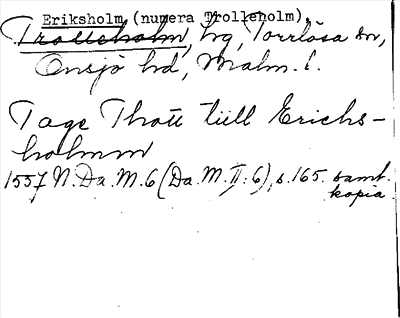 Eriksholm (numera Trolleholm),
Trolleholm, hg, Torrlösa sn,
Onsjö hd, Malm. l.
Tage Thott tiill Erichs-
holmm
1557 N. Da. M. 6 (Da. M. II: 6), s. 165. samt.
kopia.